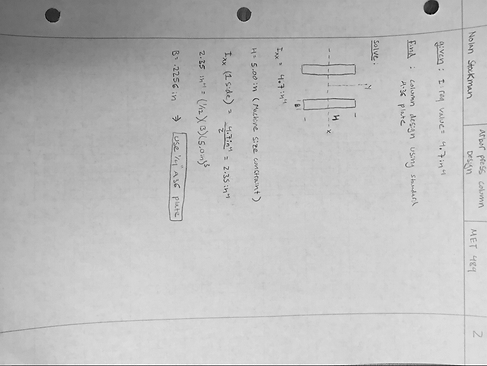 Nolan Stockman
Arbor press column
Design
MET 489
2
given: I req value = 4.7 in⁴
Find: column design using standard
A-36 plate
Solve:
Y
X
H
B
Ixx = 4.7 in⁴
H = 5.00 in (Machine size constraint)
Ixx (1 side) = 4.7 in⁴ / 2 = 2.35 in⁴
2.35 in⁴ = (1/12)(B)(5.0 in)³
B = .2256 in → use 1/4" A-36 plate